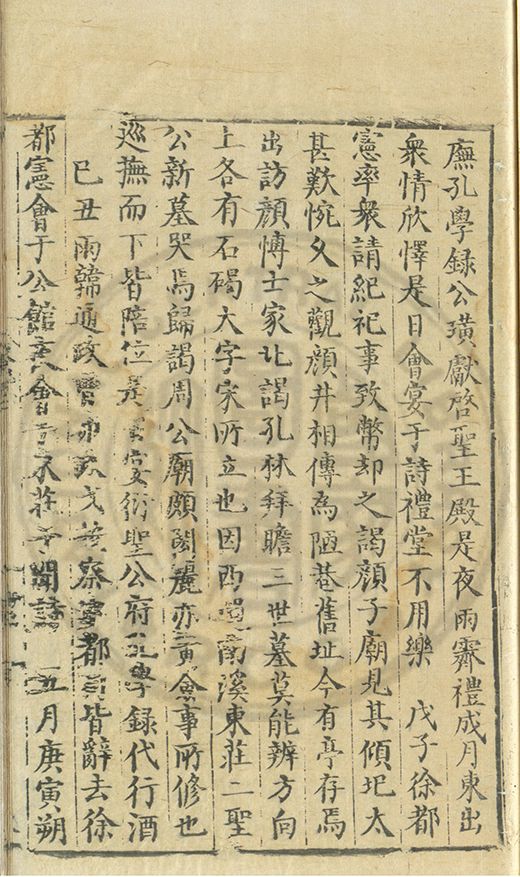 廡孔學録公璜獻啓聖王殿是夜雨霽禮成月東出
衆情欣懌是日會宴于詩禮堂不用樂　戊子徐都
憲率衆請紀祀事致幣却之謁顔子廟見其傾圮太
甚歎惋久之觀顔井相傳為陋巷舊址今有亭存焉
出訪顔博士家北謁孔林拜瞻三世墓莫能辨方向
上各有石碣大字宋所立也因西過南溪東莊二聖
公新墓哭焉歸謁周公廟頗閎麗亦黄僉事所修也
巡撫而下皆陪位是日宴衍聖公府孔學録代行酒
巳丑雨韓通政曹亦察寥都皆辭去徐
都憲會于公館會莊予聞詩　五月庚寅朔